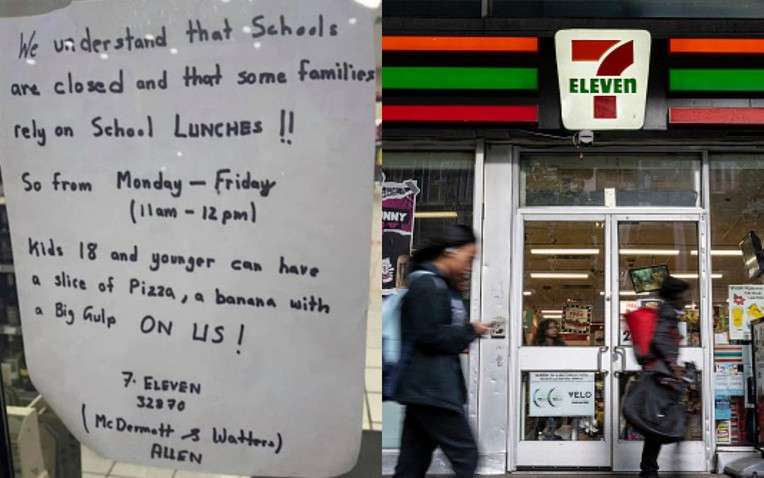 We understand that Schools
are closed and that some families
rely on School LUNCHES !!
So from Monday – Friday
(11am - 12pm)
Kids 18 and younger can have
a slice of Pizza, a banana with
a Big Gulp ON US!
7. ELEVEN
32870
(McDermott & Watters)
ALLEN
7
ELEVEN
NNY
VELO